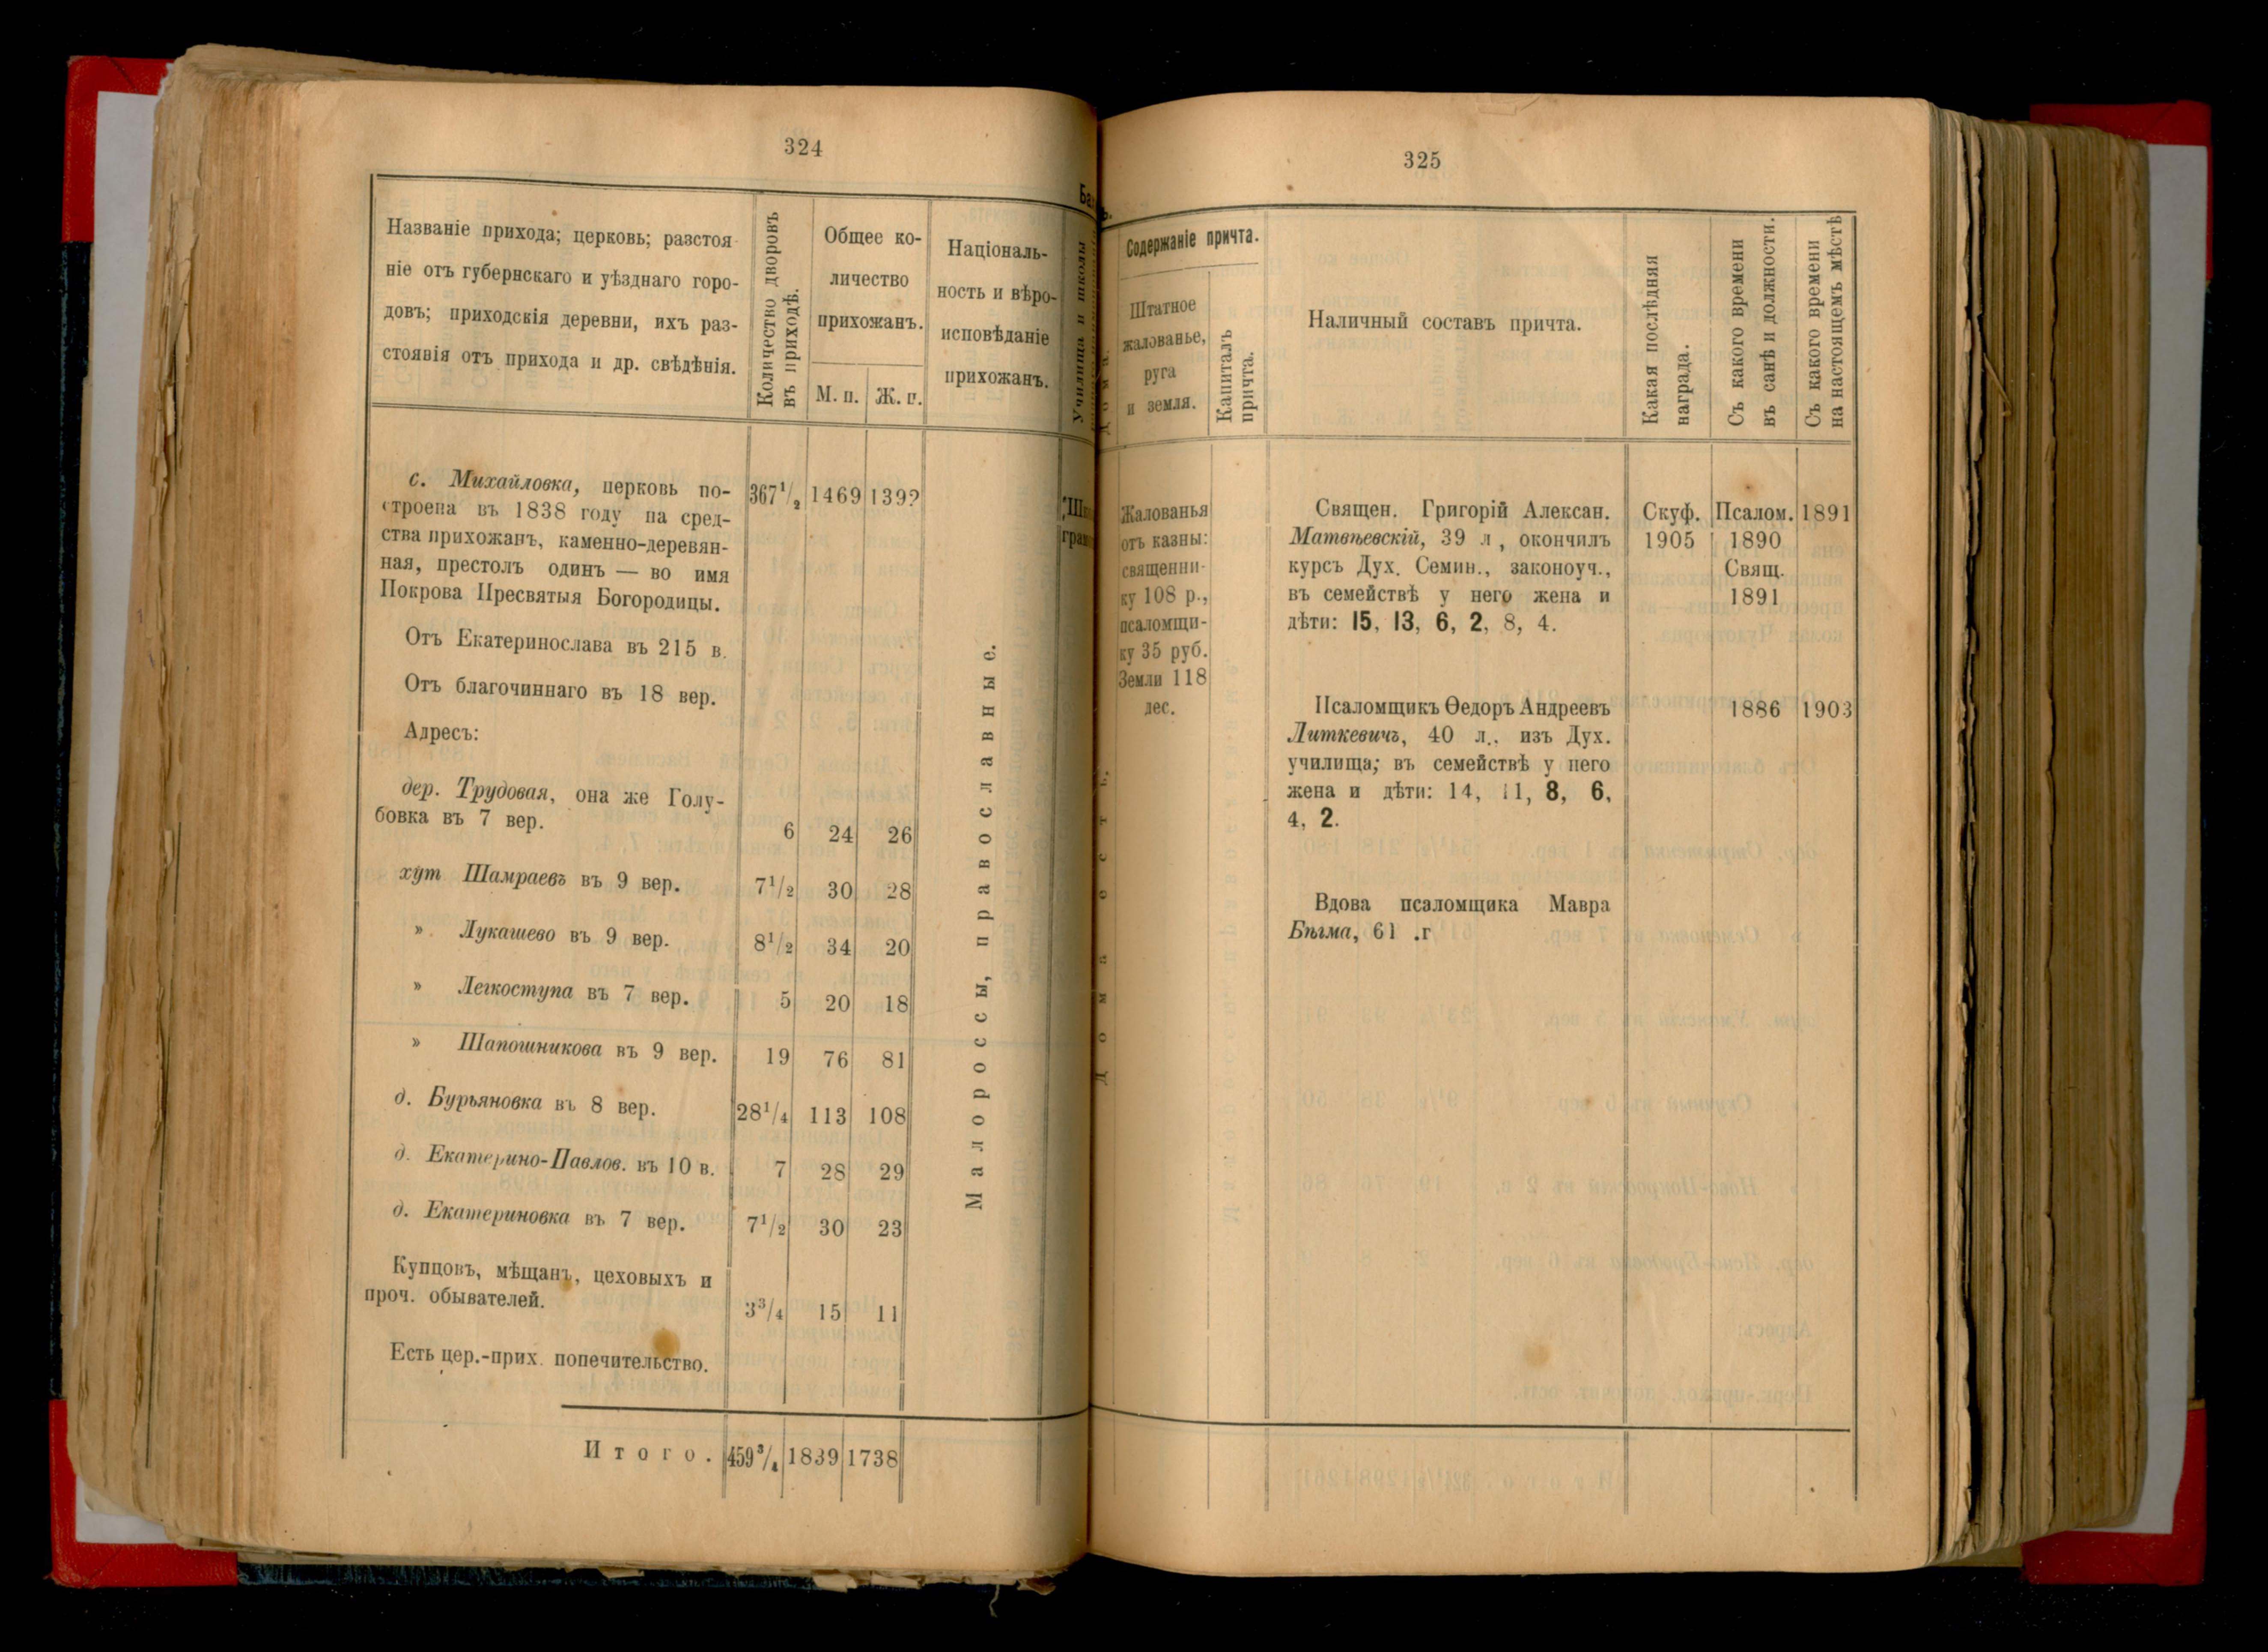 324
Названіе прихода; церковь; разстоя-
ніе отъ губернскаго и уѣзднаго горо-
довъ; приходскія деревни, ихъ раз-
стоянія отъ прихода и др. свѣдѣнія.
Количество дворовъ
въ приходѣ.
Общее ко-
личество
прихожанъ.
М. п. Ж. п.
Національ-
ность и вѣро-
исповѣданіе
прихожанъ.
Училища и школы
с. Михайловка, церковь по- 367 1/2 1469 139?
строена въ 1838 году на сред-
ства прихожанъ, каменно-деревян-
ная, престолъ одинъ — во имя
Покрова Пресвятыя Богородицы.
Отъ Екатеринослава въ 215 в.
Отъ благочиннаго въ 18 вер.
Адресъ:
дер. Трудовая, она же Голу-
бовка въ 7 вер. 6 24 26
хут Шамраевъ въ 9 вер. 7 1/2 30 28
» Лукашево въ 9 вер. 8 1/2 34 20
» Легкоступа въ 7 вер. 5 20 18
» Шапошникова въ 9 вер. 19 76 81
д. Бурьяновка въ 8 вер. 28 1/4 113 108
д. Екатерино-Павлов. въ 10 в. 7 28 29
д. Екатериновка въ 7 вер. 7 1/2 30 23
Купцовъ, мѣщанъ, цеховыхъ и
проч. обывателей. 3 3/4 15 11
Есть цер.-прих. попечительство.
Малороссы, православные.
Итого. 459 3/4 1839 1738
325
Содержаніе причта.
Штатное
жалованье,
руга
и земля.
Капиталъ
причта.
Наличный составъ причта.
Какая послѣдняя
награда.
Съ какого времени
въ санѣ и должности.
Съ какого времени
на настоящемъ мѣстѣ
Жалованья
отъ казны:
священни-
ку 108 р.,
псаломщи-
ку 35 руб.
Земли 118
дес.
Священ. Григорій Алексан. Скуф. Псалом. 1891
Матвѣевскій, 39 л , окончилъ 1905 1890
курсъ Дух. Семин., законоуч., Свящ.
въ семействѣ у него жена и 1891
дѣти: 15, 13, 6, 2, 8, 4.
Псаломщикъ Ѳедоръ Андреевъ 1886 1903
Литкевичъ, 40 л., изъ Дух.
училища; въ семействѣ у него
жена и дѣти: 14, 11, 8, 6,
4, 2.
Вдова псаломщика Мавра
Бѣгма, 61 .г